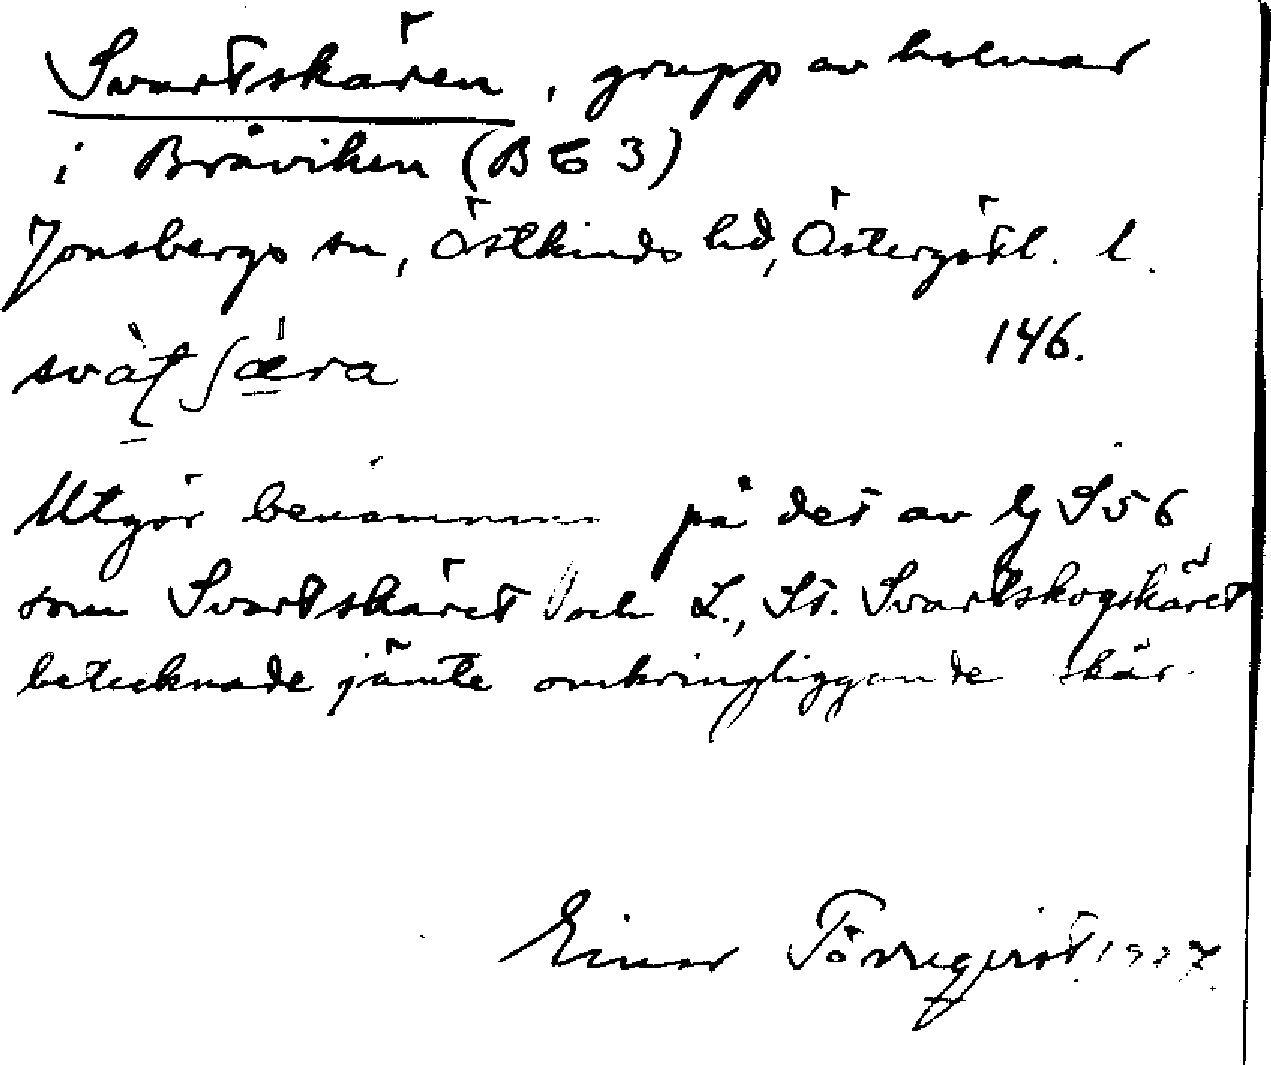 Svartskären, grupp av holmar
i Bråviken (B 6 3)
Jonsbergs sn, Östkinds hd, Östergötl. l.
146.
Utgör benämn på det av Sj S 56
som Svartskäret och L., St. Svartskogskäret
betecknade jämte omkringliggande skär.
Einar Törneqvist 1927